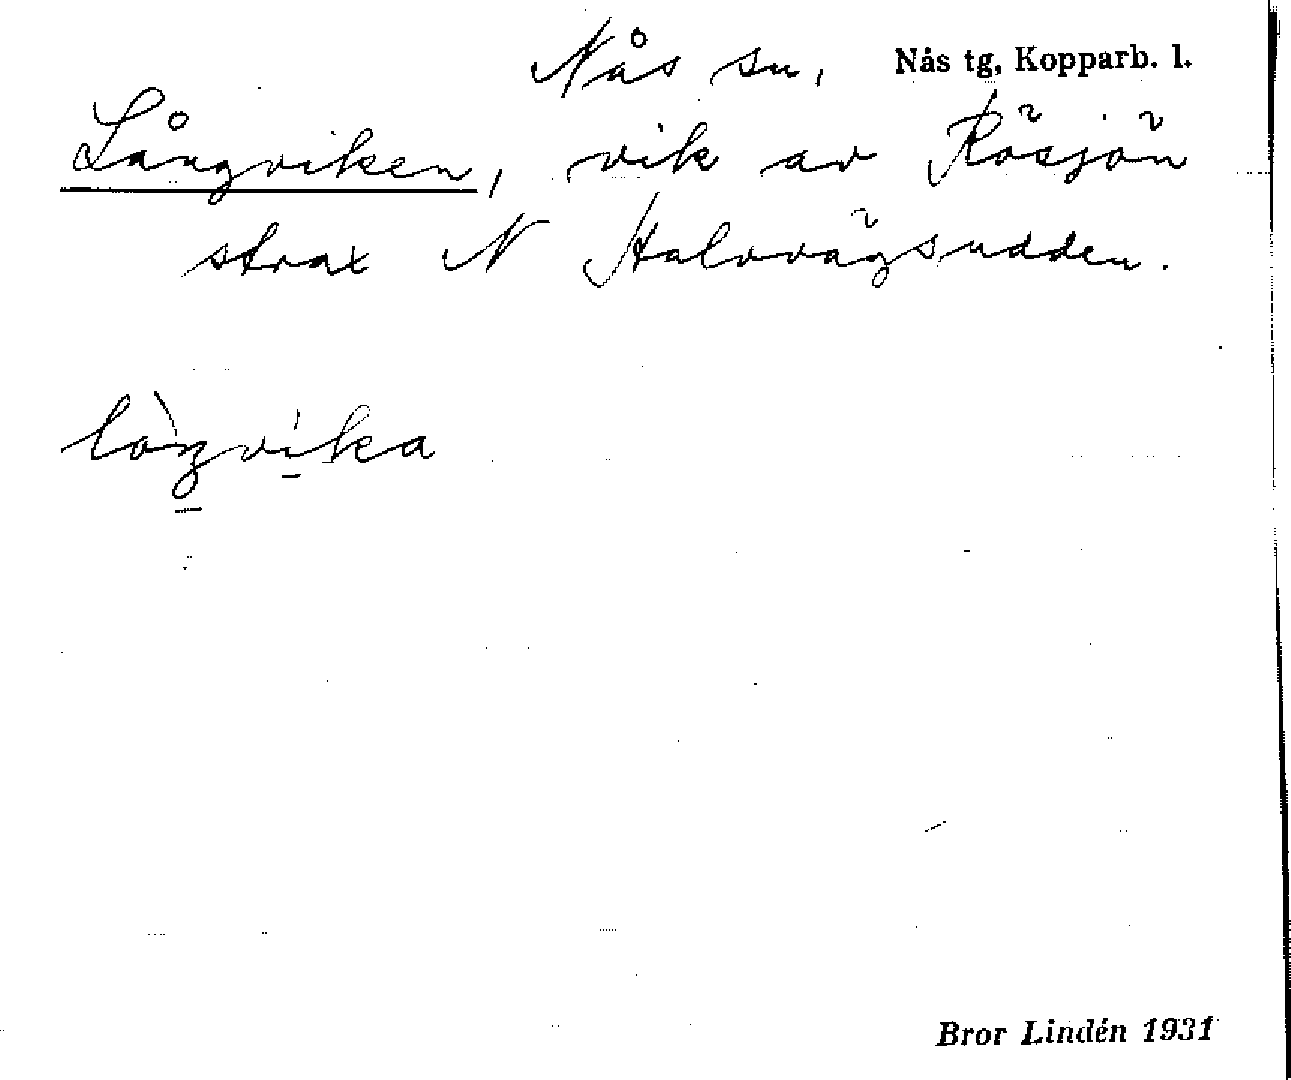 Nås sn, Nås tg, Kopparb. l.
Långviken, vik av Rösjön
strax N Halvvägsudden.
lòŋvika
Bror Lindén 1931